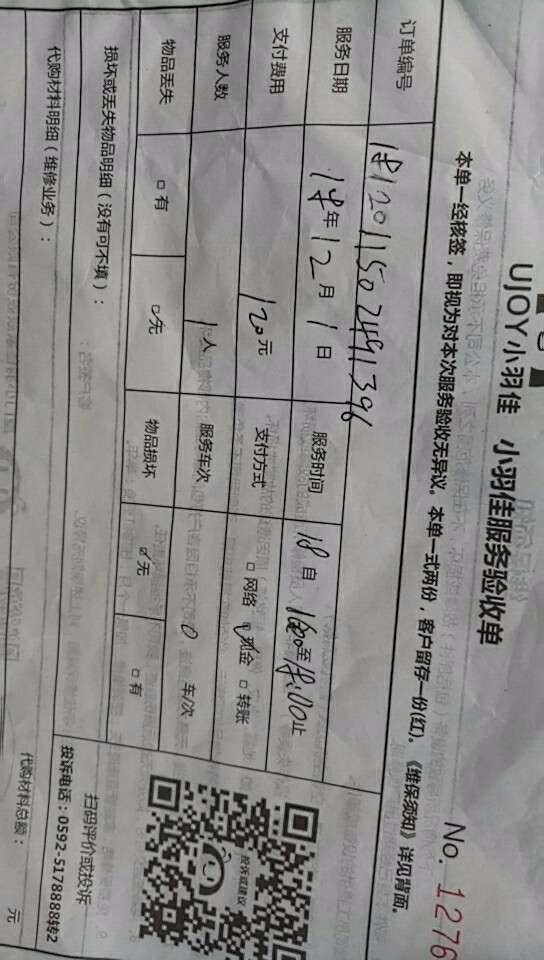 UJOY小羽佳 小羽佳服务验收单
No. 1276
本单一经核签，即视为对本次服务验收无异议。本单一式两份，客户留存一份(红)。《维保须知》详见背面。
订单编号 1812011502491396
服务日期 18年12月1日 服务时间
支付费用 120元 支付方式 □网络 ☑现金 □转账
服务人数 1人 服务车次 0 车/次
物品丢失 □有 ☑无 物品损坏 ☑无 □有
损坏或丢失物品明细（没有可不填）：
投诉或建议
扫码评价或投诉
投诉电话：0592-5178888转2
代购材料明细（维修业务）：
代购材料总额： 元